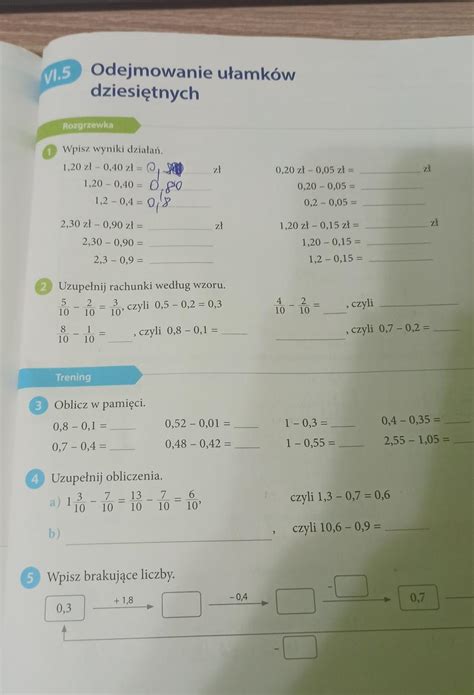 VI.5 Odejmowanie ułamków
dziesiętnych
Rozgrzewka
1 Wpisz wyniki działań.
1,20 zł – 0,40 zł = 0, zł
1,20 – 0,40 = 0,80
1,2 – 0,4 = 0,8
0,20 zł – 0,05 zł = zł
0,20 – 0,05 =
0,2 – 0,05 =
2,30 zł – 0,90 zł = zł
2,30 – 0,90 =
2,3 – 0,9 =
1,20 zł – 0,15 zł = zł
1,20 – 0,15 =
1,2 – 0,15 =
2 Uzupełnij rachunki według wzoru.
5/10 – 2/10 = 3/10, czyli 0,5 – 0,2 = 0,3
4/10 – 2/10 = ____, czyli ____
8/10 – 1/10 = ____, czyli 0,8 – 0,1 = ____
____, czyli 0,7 – 0,2 = ____
Trening
3 Oblicz w pamięci.
0,8 – 0,1 = ____ 0,52 – 0,01 = ____ 1 – 0,3 = ____ 0,4 – 0,35 = ____
0,7 – 0,4 = ____ 0,48 – 0,42 = ____ 1 – 0,55 = ____ 2,55 – 1,05 = ____
4 Uzupełnij obliczenia.
a) 1 3/10 – 7/10 = 13/10 – 7/10 = 6/10, czyli 1,3 – 0,7 = 0,6
b) ____, czyli 10,6 – 0,9 = ____
5 Wpisz brakujące liczby.
0,3 + 1,8 – 0,4 – 0,7
–